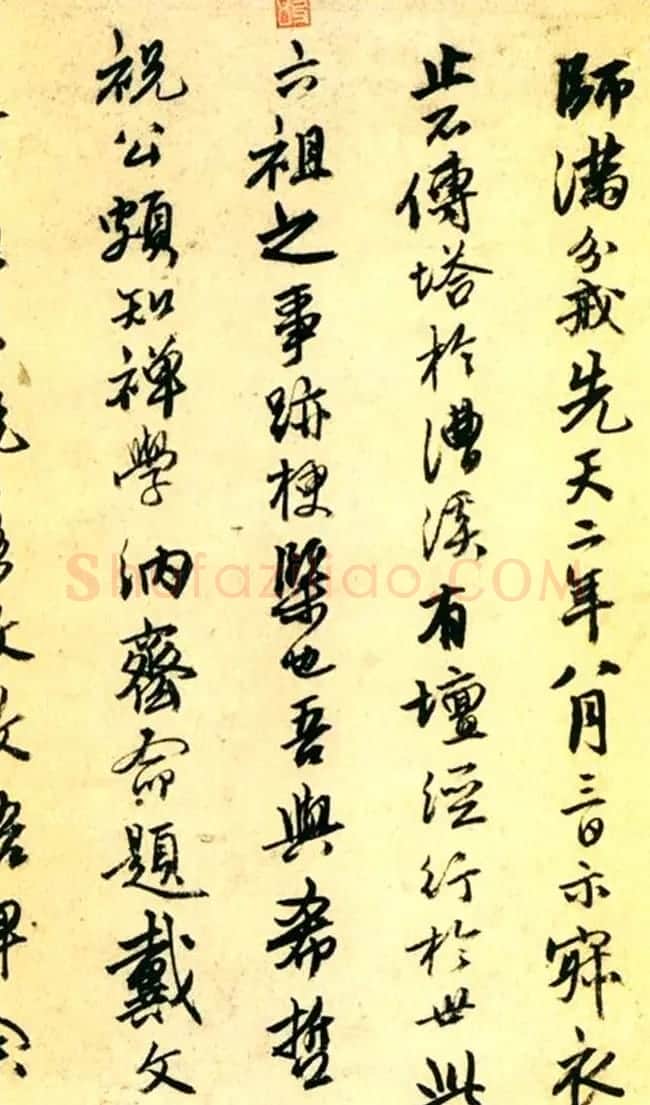 師滿分戒先天二年八月三日示寂衣
止不傳塔於漕溪有壇經行於世此
六祖之事跡梗槩也吾與希哲
祝公頗知禪學納齋命題戴文
Shufaziliao.COM